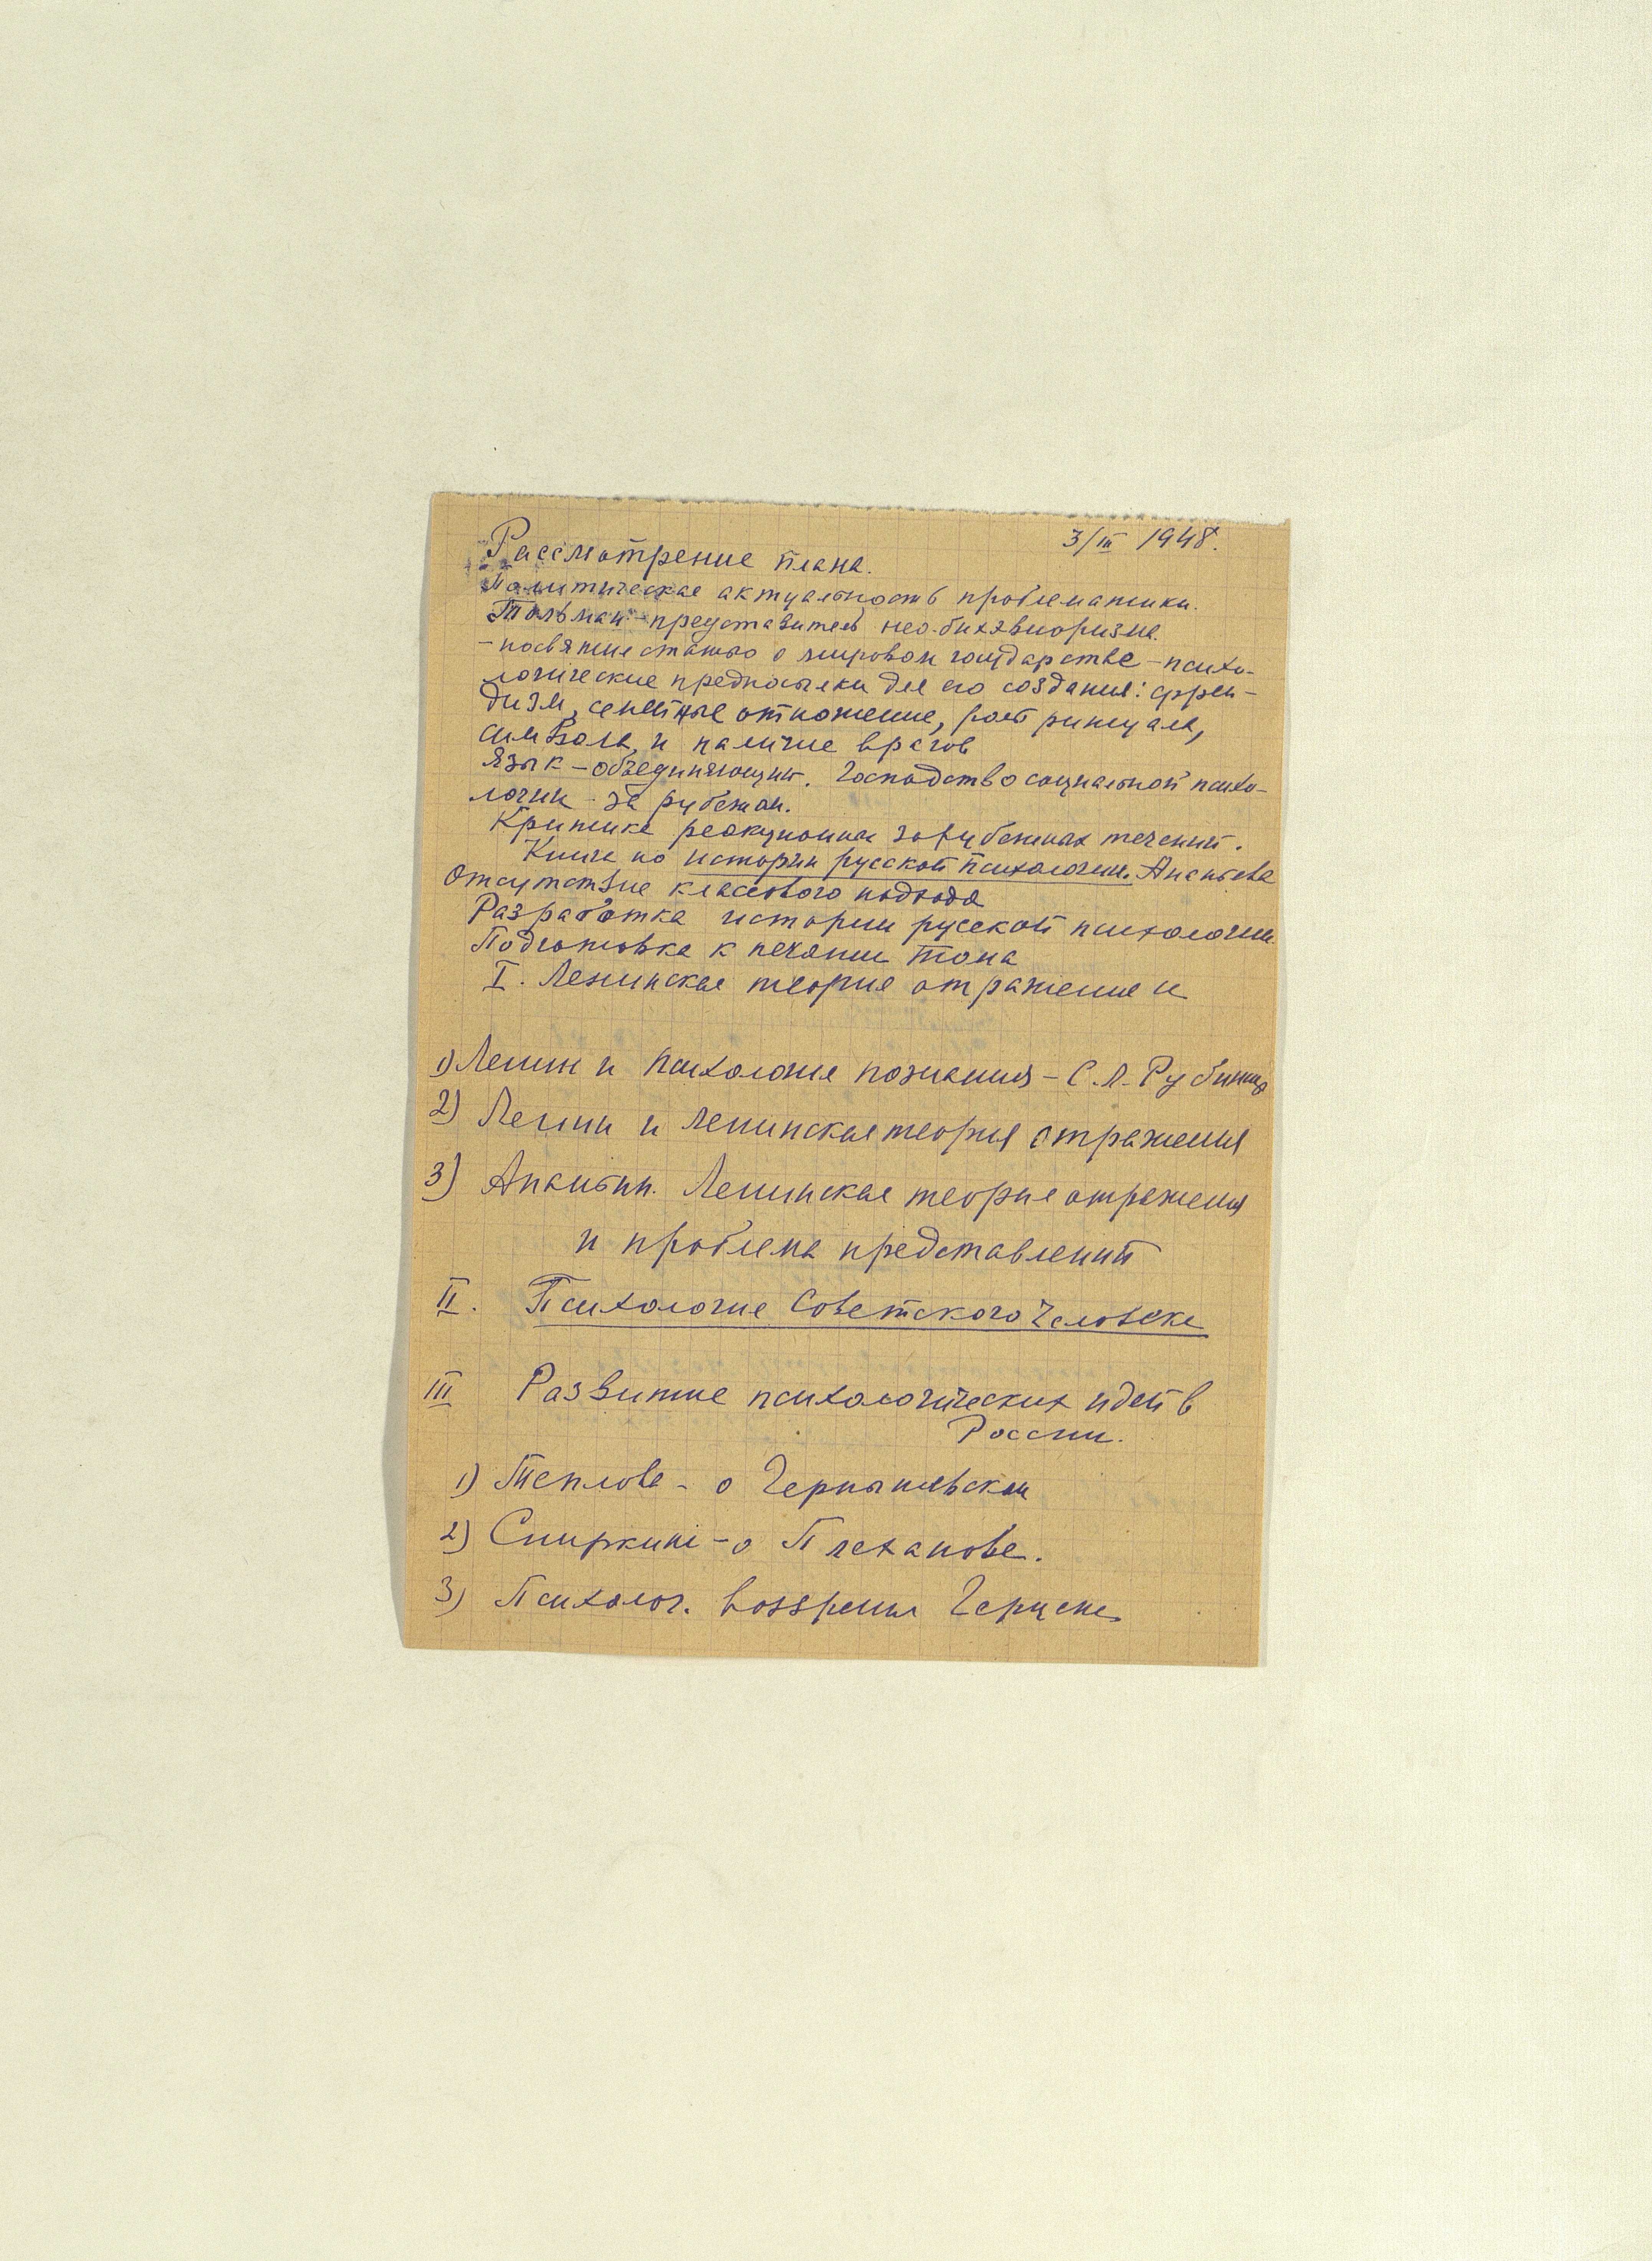 3/III 1948.
Рассмотрение плана.
Политическая актуальность проблематики.
Тольман – представитель нео-бихэвиоризма
– посвятил статью о мировом государстве – психо-
логические предпосылки для его создания: фрей-
дизм, семейные отношения, роль ритуала,
символа, и наличие врагов
Язык – объединяющий. Господство социальной психо-
логии за рубежом.
Критика реакционных зарубежных течений.
Книга по истории русской психологии. Ананьева
Отсутствие классового подхода
Разработка истории русской психологии.
Подготовка к печати тома
I. Ленинская теория отражения и
1) Ленин и психология познания – С.Л. Рубинш
2) Ленин и ленинская теория отражения
3) Ананьин. Ленинская теория отражения
и проблема представлений
II. Психология Советского Человека
III Развитие психологических идей в
России.
1) Теплова – о Чернышевском
2) Спиркин – о Плеханове.
3) Психолог. воззрения Герцена